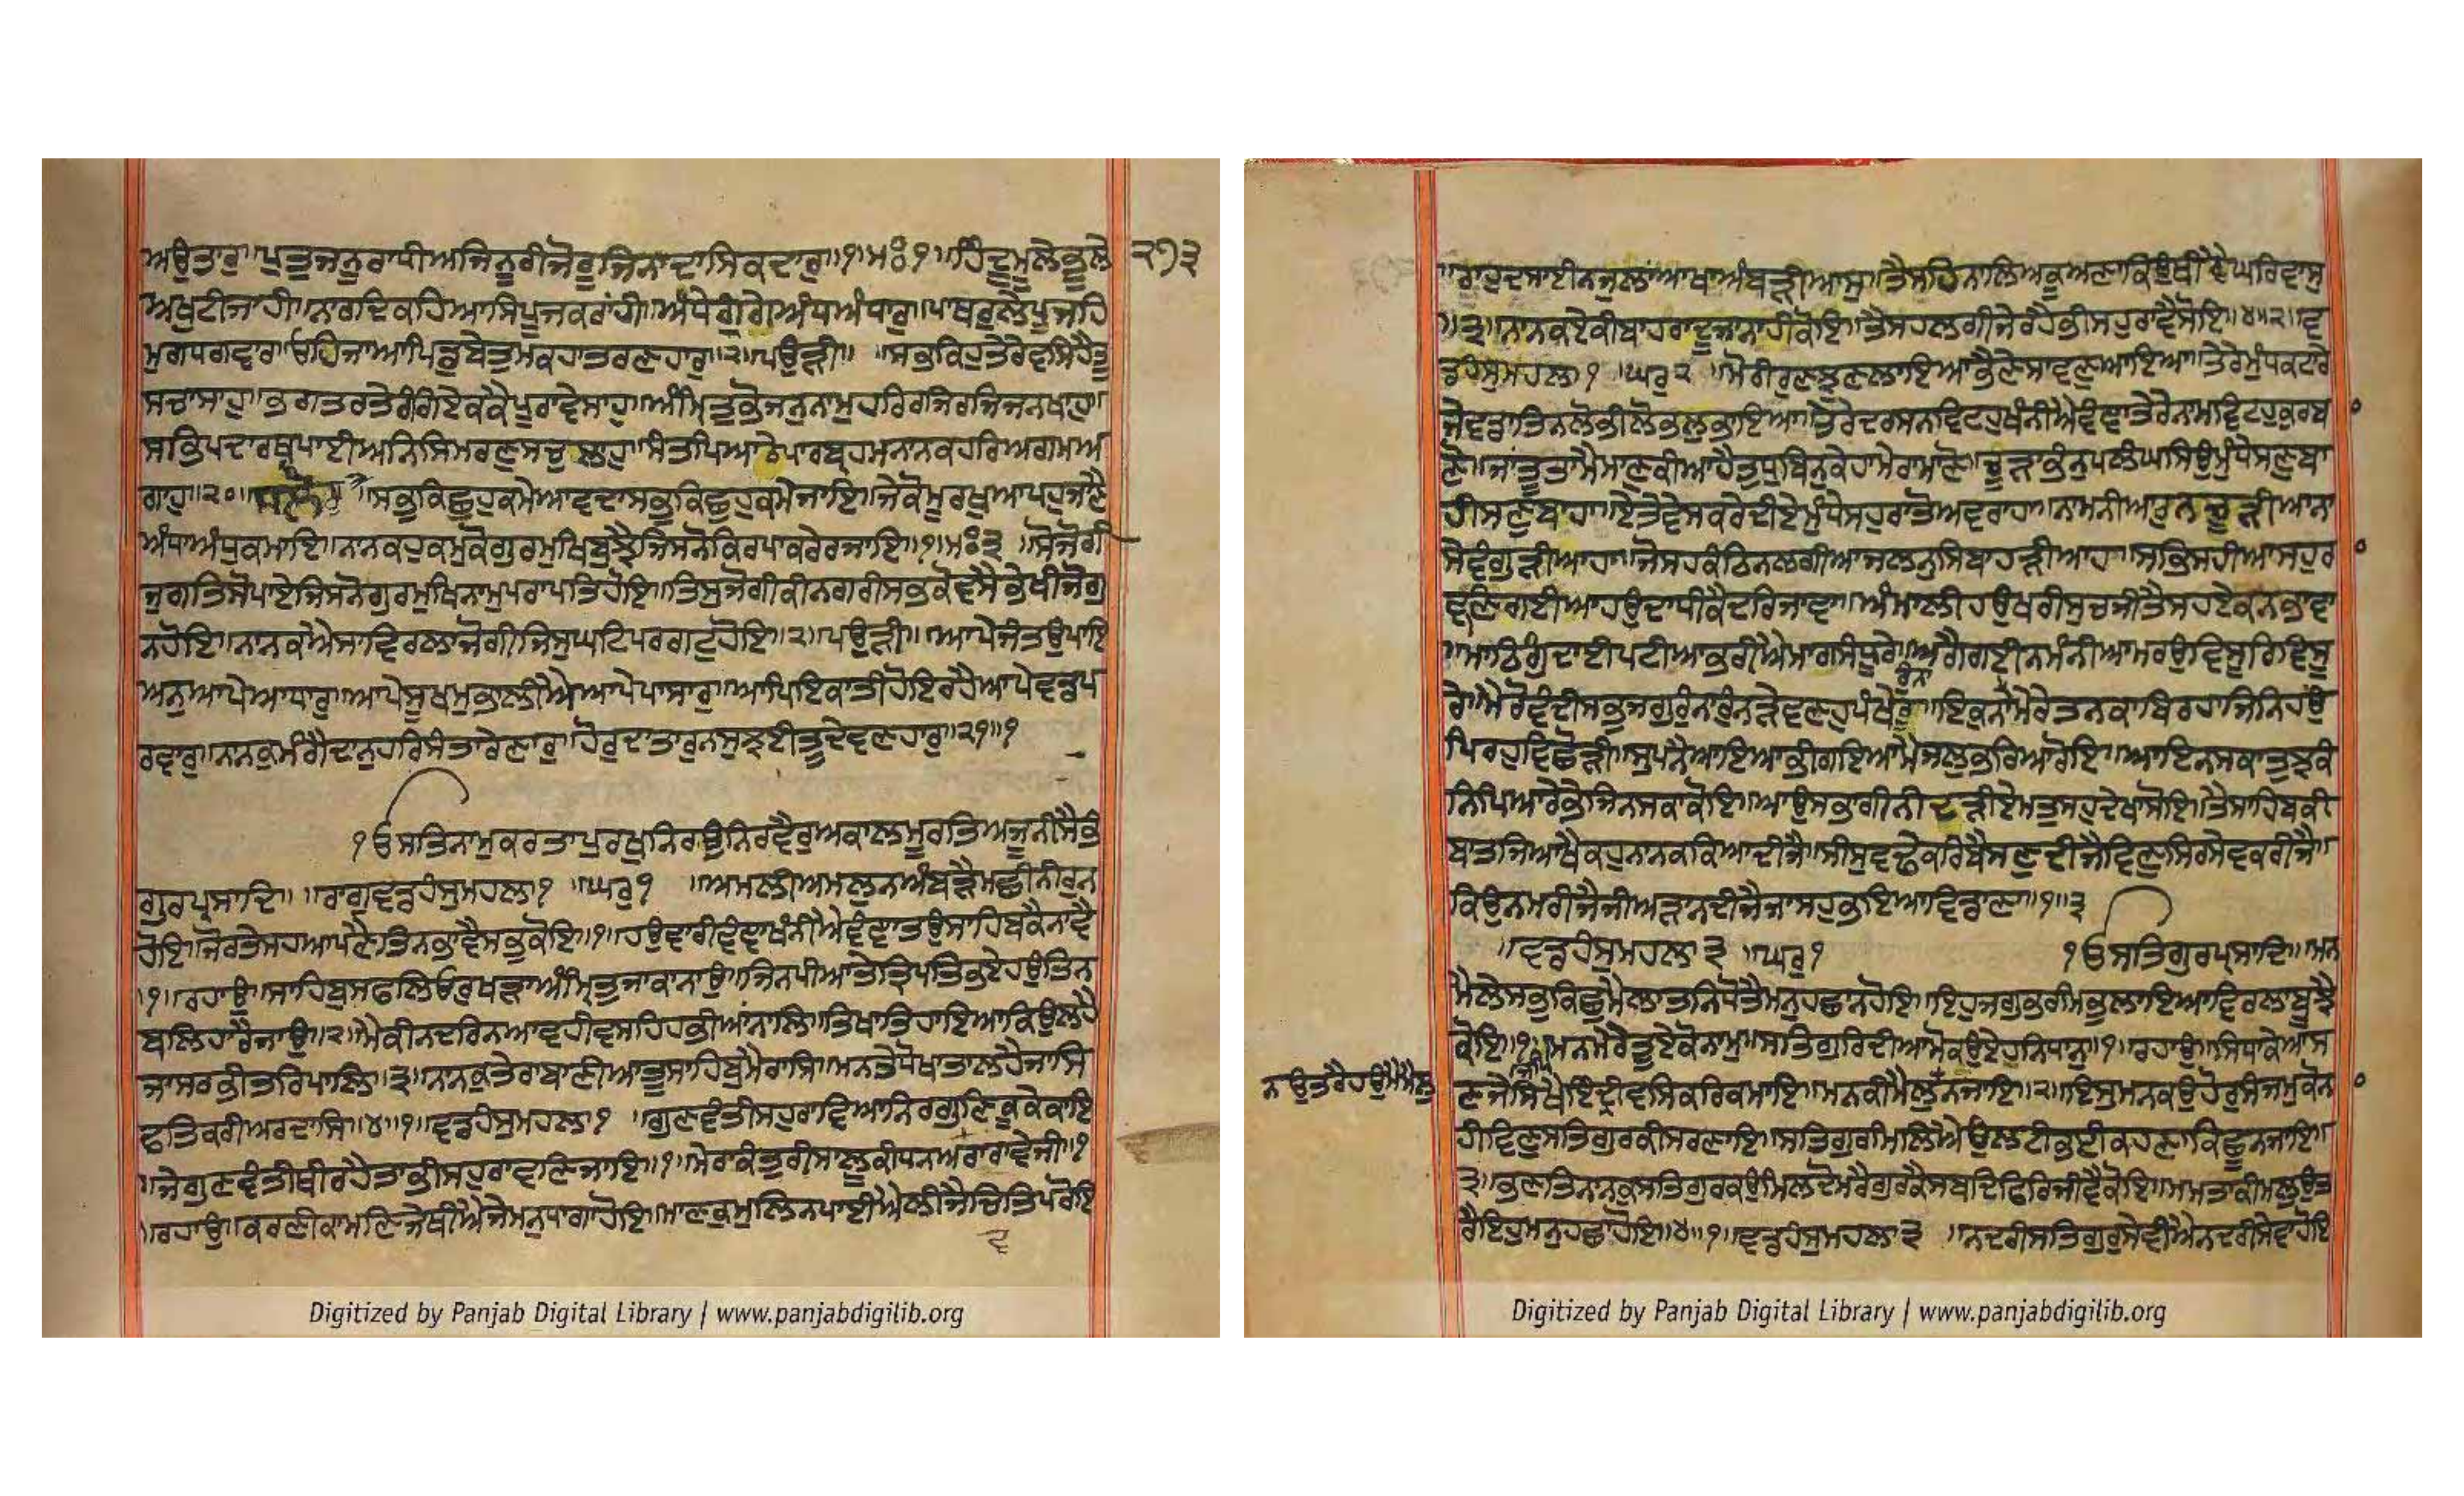 ਅਉਤਾਰੁ॥ਪੁਤੁਜਨੂਰਾਪੀਅਜਿਨੂਰੀਜੋਰੂਜਿਨਾਦਾਸਿਕਦਾਰੁ॥੧॥ਮਃ੧॥ਹਿੰਦੂਮੂਲੇਭੂਲੇ ੨੭੩
ਅਖੁਟੀਜਾਹੀ॥ਨਾਰਦਿਕਹਿਆਸਿਪੂਜਕਰਾਂਹੀ॥ਅੰਧੇਗੁੰਗੇਅੰਧਅੰਧਾਰੁ॥ਪਾਥਰੁਲੇਪੂਜਹਿ
ਮੁਗਧਗਵਾਰਾ॥ਓਹਿਜਾਆਪਿਡੁਬੇਤੁਮਕਹਾਤਰਣਹਾਰੁ॥੨॥ਪਉੜੀ॥ ॥ਸਭੁਕਿਹੁਤੇਰੇਵਸਿਹੈਤੂ
ਸਚਾਸਾਹੁ॥ਭਗਤਰਤੇਰੰਗਿਏਕਕੈਪੂਰਾਵੇਸਾਹੁ॥ਅੰਮ੍ਰਿਤੁਭੋਜਨੁਨਾਮੁਹਰਿਰਜਿਰਜਿਜਨਖਾਹੁ॥
ਸਭਿਪਦਾਰਥਪਾਈਅਨਿਸਿਮਰਣੁਸਚੁਲਾਹੁ॥ਸੰਤਪਿਆਰੇਪਾਰਬ੍ਰਹਮਨਾਨਕਹਰਿਅਗਮਅ
ਗਾਹੁ॥੨੦॥ ॥ਸਭੁਕਿਛੁਹੁਕਮੇਆਵਦਾਸਭੁਕਿਛੁਹੁਕਮੇਜਾਇ॥ਜੇਕੋਮੂਰਖੁਆਪਹੁਜਾਣੈ
ਅੰਧਾਅੰਧੁਕਮਾਇ॥ਨਾਨਕਹੁਕਮੁਕੋਗੁਰਮੁਖਿਬੁਝੈਜਿਸਨੋਕਿਰਪਾਕਰੇਰਜਾਇ॥੧॥ਮਃ੩ ॥ਸੋਜੋਗੀ
ਜੁਗਤਿਸੋਪਾਏਜਿਸਨੋਗੁਰਮੁਖਿਨਾਮੁਪਰਾਪਤਿਹੋਇ॥ਤਿਸੁਜੋਗੀਕੀਨਗਰੀਸਭੁਕੋਵਸੈਭੇਖੀਜੋਗੁ
ਨਹੋਇ॥ਨਾਨਕਐਸਾਵਿਰਲਾਜੋਗੀਜਿਸੁਘਟਿਪਰਗਟੁਹੋਇ॥੨॥ਪਉੜੀ॥ ॥ਆਪੇਜੰਤਉਪਾਇ
ਅਨੁਆਪੇਆਧਾਰੁ॥ਆਪੇਸੂਖਮੁਭਾਲੀਐਆਪੇਪਾਸਾਰੁ॥ਆਪਿਇਕਾਤੀਹੋਇਰਹੈਆਪੇਵਡਪ
ਰਵਾਰੁ॥ਨਾਨਕੁਮੰਗੈਦਾਨੁਹਰਿਸੰਤਾਰੇਣਾਰੁ॥ਹੋਰੁਦਾਤਾਰੁਨਸੁਝਈਤੂਦੇਵਣਹਾਰੁ॥੨੧॥੧
ੴਸਤਿਨਾਮੁਕਰਤਾਪੁਰਖੁਨਿਰਭਉਨਿਰਵੈਰੁਅਕਾਲਮੂਰਤਿਅਜੂਨੀਸੈਭੰ
ਗੁਰਪ੍ਰਸਾਦਿ॥ ॥ਰਾਗੁਵਡਹੰਸੁਮਹਲਾ੧ ॥ਘਰੁ੧ ॥ਅਮਲੀਅਮਲੁਨਅੰਬੜੈਮਛੀਨੀਰੁਨ
ਹੋਇ॥ਜੋਰਤੇਸਹਆਪਣੈਤਿਨਭਾਵੈਸਭੁਕੋਇ॥੧॥ਹਉਵਾਰੀਵੰਞਾਖੰਨੀਐਵੰਞਾਤਉਸਾਹਿਬਕੈਨਾਵੈ
॥੧॥ਰਹਾਉ॥ਸਾਹਿਬੁਸਫਲਿਓਰੁਖੜਾਅੰਮ੍ਰਿਤੁਜਾਕਾਨਾਉ॥ਜਿਨਪੀਆਤੇਤ੍ਰਿਪਤਿਭਏਹਉਤਿਨ
ਬਲਿਹਾਰੈਜਾਉ॥੨॥ਮੈਕੀਨਦਰਿਨਆਵਹੀਵਸਹਿਹਭੀਆਂਨਾਲਿ॥ਤਿਖਾਤਿਹਾਇਆਕਿਉਲਹੈ
ਜਾਸਰਭੀਤਰਿਪਾਲਿ॥੩॥ਨਾਨਕੁਤੇਰਾਬਾਣੀਆਤੂਸਾਹਿਬੁਮੈਰਾਸਿ॥ਮਨਤੇਧੋਖਾਤਾਲਹੈਜਾਸਿ
ਫਤਿਕਰੀਅਰਦਾਸਿ॥੪॥੧॥ਵਡਹੰਸੁਮਹਲਾ੧ ॥ਗੁਣਵੰਤੀਸਹੁਰਾਵਿਆਨਿਰਗੁਣਿਕੂਕੇਕਾਇ
॥ਜੇਗੁਣਵੰਤੀਥੀਰਹੈਤਾਭੀਸਹੁਰਾਵਣਿਜਾਇ॥੧॥ਮੇਰਾਕੰਤੁਰੀਸਾਲੂਕੀਧਨਅਵਰਾਰਾਵੇਜੀ॥੧
॥ਰਹਾਉ॥ਕਰਣੀਕਾਮਣਿਜੇਥੀਐਜੇਮਨੁਧਾਗਾਹੋਇ॥ਮਾਣਕੁਮੁਲਿਨਪਾਈਐਲੀਜੈਚਿਤਿਪਰੋਇ
Digitized by Panjab Digital Library | www.panjabdigilib.org
॥ਰਾਹੁਦਸਾਈਨਜੁਲਾਂਆਖਾਅੰਬੜੀਆਸੁ॥ਤੈਸਹਿਨਾਲਿਅਕੂਅਣਾਕਿਉਥੀਵੈਘਰਿਵਾਸੁ
॥੩॥ਨਾਨਕਏਕੀਬਾਹਰਾਦੂਜਾਨਾਹੀਕੋਇ॥ਤੈਸਹਲਗੀਜੇਰਹੈਭੀਸਹੁਰਾਵੈਸੋਇ॥੪॥੨॥ਵ
ਡਹੰਸੁਮਹਲਾ੧ ॥ਘਰੁ੨ ॥ਮੋਰੀਰੁਣਝੁਣਲਾਇਆਭੈਣੇਸਾਵਣੁਆਇਆ॥ਤੇਰੇਮੁੰਧਕਟਾਰੇ
ਜੇਵਡਾਤਿਨਲੋਭੀਲੋਭਲੁਭਾਇਆ॥ਤੇਰੇਦਰਸਨਵਿਟਹੁਖੰਨੀਐਵੰਞਾਤੇਰੇਨਾਮਵਿਟਹੁਕੁਰਬ
ਣੋ॥ਜਾਤੂਤਾਮੈਮਾਣਕੀਆਹੈਤੁਧੁਬਿਨੁਕੇਹਾਮੇਰਾਮਾਣੋ॥ਚੂੜਾਭੰਨੁਪਲੰਘਸਿਉਮੁੰਧੇਸਣੁਬਾ
ਹੀਸਣੁਬਾਹਾ॥ਏਤੇਵੇਸਕਰੇਦੀਏਮੁੰਧੇਸਹੁਰਾਤੋਅਵਰਾਹਾ॥ਨਾਮਨੀਆਰੁਨਚੂੜੀਆਨਾ
ਸੇਵੰਗੁੜੀਆਹਾ॥ਜੋਸਹਕੰਠਿਨਲਗੀਆਜਲਨੁਸਿਬਾਹੜੀਆਹਾ॥ਸਭਿਸਹੀਆਸਹੁਰ
ਵਣਿਗਈਆਹਉਦਾਧੀਕੈਦਰਿਜਾਵਾ॥ਅੰਮਾਲੀਹਉਖਰੀਸੁਚਜੀਤੈਸਹਏਕਨਭਾਵਾ
॥ਮਾਠਿਗੁੰਦਾਈਪਟੀਆਭਰੀਐਮਾਗਸੰਧੂਰੇ॥ਅਗੈਗਈਨਮੰਨੀਆਮਰਉਵਿਸੂਰਿਵਿਸੂ
ਰੇ॥ਮੈਰੋਵੰਦੀਸਭੁਜਗੁਰੁੰਨਾਰੁੰਨੜੇਵਣਹੁਪੰਖੇਰੂ॥ਇਕੁਨਮੇਰੇਤਨਕਾਬਿਰਹਾਜਿਨਿਹਉ
ਪਿਰਹੁਵਿਛੋੜੀ॥ਸੁਪਨੈਆਇਆਭੀਗਇਆਮੈਜਲੁਭਰਿਆਰੋਇ॥ਆਇਨਸਕਾਤੁਝਕ
ਨਿਪਿਆਰੇਭੇਜਿਨਸਕਾਕੋਇ॥ਆਉਸਭਾਗੀਨੀਦੜੀਏਮਤੁਸਹੁਦੇਖਾਸੋਇ॥ਤੈਸਾਹਿਬਕੀ
ਬਾਤਜਿਆਖੈਕਹੁਨਾਨਕਕਿਆਦੀਜੈ॥ਸੀਸੁਵਢੇਕਰਿਬੈਸਣੁਦੀਜੈਵਿਣੁਸਿਰਸੇਵਕਰੀਜੈ॥
ਕਿਉਨਮਰੀਜੈਜੀਅੜਾਨਦੀਜੈਜਾਸਹੁਭਇਆਵਿਡਾਣਾ॥੧॥੩
॥ਵਡਹੰਸੁਮਹਲਾ੩ ॥ਘਰੁ੧ ੴਸਤਿਗੁਰਪ੍ਰਸਾਦਿ॥ਮਨ
ਮੈਲੇਸਭੁਕਿਛੁਮੈਲਾਤਨਿਧੋਤੈਮਨੁਹਛਾਨਹੋਇ॥ਇਹੁਜਗੁਭਰਮਿਭੁਲਾਇਆਵਿਰਲਾਬੂਝੈ
ਕੋਇ॥੧॥ਮਨਮੇਰੇਤੂਏਕੋਨਾਮੁ॥ਸਤਿਗੁਰਿਦੀਆਮੋਕਉਏਹੁਨਿਧਾਨੁ॥੧॥ਰਹਾਉ॥ਸਿਧਾਕੇਆਸ
ਣਜੇਸਿਖੈਇੰਦ੍ਰੀਵਸਿਕਰਿਕਮਾਇ॥ਮਨਕੀਮੈਲੁਨਜਾਇ॥੨॥ਇਸੁਮਨਕਉਹੋਰੁਸੰਜਮੁਕੋਨ
ਨਉਤਰੈਹਉਮੈਮੈਲੁ
ਹੀਵਿਣੁਸਤਿਗੁਰਕੀਸਰਣਾਇ॥ਸਤਿਗੁਰਮਿਲਿਐਉਲਟੀਭਈਕਹਣਾਕਿਛੂਨਜਾਇ॥
੩॥ਭਣਤਿਨਾਨਕੁਸਤਿਗੁਰਕਉਮਿਲਦੋਮਰੈਗੁਰਕੈਸਬਦਿਫਿਰਿਜੀਵੈਕੋਇ॥ਮਮਤਾਕੀਮਲੁਉਤ
ਰੈਇਹੁਮਨੁਹਛਾਹੋਇ॥੪॥੧॥ਵਡਹੰਸੁਮਹਲਾ੩ ॥ਨਦਰੀਸਤਿਗੁਰੁਸੇਵੀਐਨਦਰੀਸੇਵਾਹੋਇ
Digitized by Panjab Digital Library | www.panjabdigilib.org